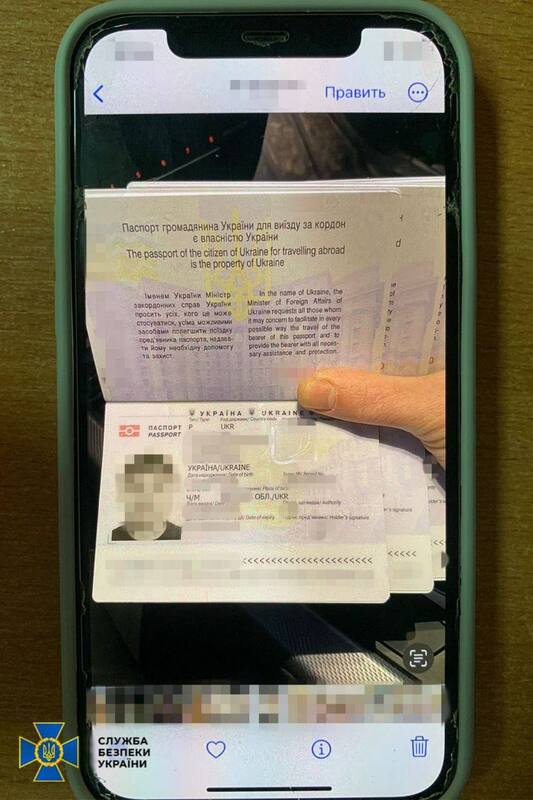 Править
Паспорт громадянина України для виїзду за кордон
є власністю України
The passport of the citizen of Ukraine for travelling abroad
is the property of Ukraine
Іменем України Міністр
закордонних справ України
просить усіх, кого це може
стосуватися, усіма можливими
засобами полегшити поїздку
пред'явника паспорта, надава-
ти йому необхідну допомогу
та захист.
In the name of Ukraine, the
Minister of Foreign Affairs of
Ukraine requests all those whom
it may concern to facilitate in every
possible way the travel of the
bearer of this passport and to
provide the bearer with all neces-
sary assistance and protection.
d
УКРАЇНА UKRAINE
ПАСПОРТ
PASSPORT
P
UKR
УКРАЇНА/UKRAINE
Дата народження/ Date of birth
Place of birth
Ч/М
ОБЛ./UKR
Authority
Date of expiry
Holder's signature
<<<<<<<<<<<<<<<<<<<<
СЛУЖБА
БЕЗПЕКИ
УКРАЇНИ